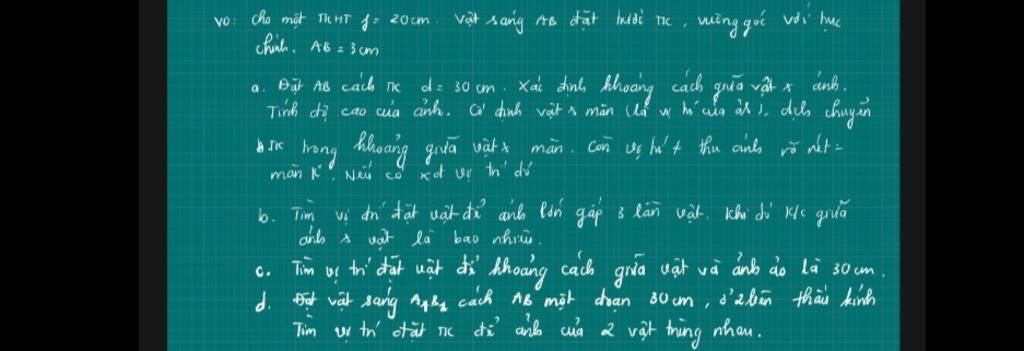 VD: Cho một TKHT f = 20cm. Vật sáng AB đặt trước TK, vuông góc với trục
chính. AB = 3cm
a. Đặt AB cách TK d = 30 cm. Xác định khoảng cách giữa vật & ảnh.
Tính độ cao của ảnh. Cố định vật & màn (là vị trí của ảnh), dịch chuyển
TK trong khoảng giữa vật & màn. Còn vị trí ≠ thu ảnh rõ nét
màn K°. Nếu có xđ vị trí đó
b. Tìm vị trí đặt vật để ảnh lớn gấp 3 lần vật. Khi đó k/c giữa
ảnh & vật là bao nhiêu.
c. Tìm vị trí đặt vật để khoảng cách giữa vật và ảnh ảo là 30 cm.
d. Đặt vật sáng A₁B₁ cách AB một đoạn 30 cm, ở 2 bên thấu kính
Tìm vị trí đặt TK để ảnh của 2 vật trùng nhau.